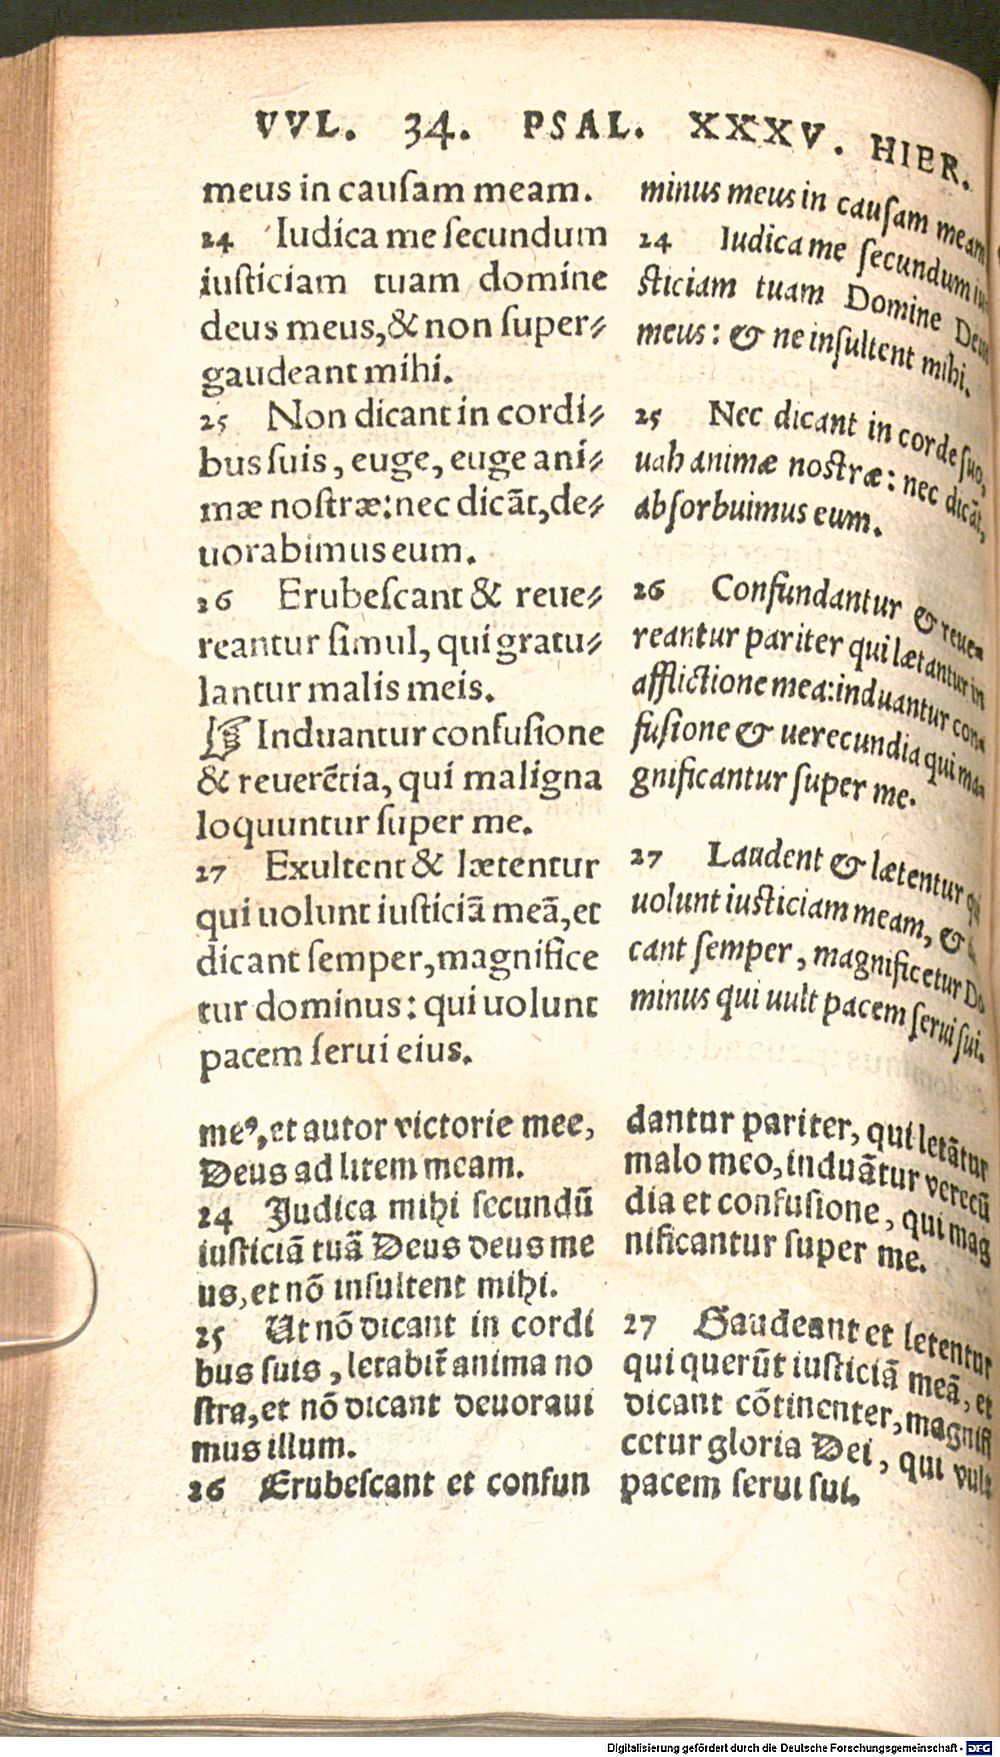 VVL. 34. PSAL. XXXV. HIER.
meus in cauſam meam.
24 Iudica me ſecundum
iuſticiam tuam domine
deus meus,& non ſuper⸗
gaudeant mihi.
25 Non dicant in cordi⸗
bus ſuis, euge, euge ani⸗
mæ noſtræ: nec dicãt, de⸗
uorabimus eum.
26 Erubeſcant & reue⸗
reantur ſimul, qui gratu⸗
lantur malis meis.
☞ Induantur confuſione
& reuerẽtia, qui maligna
loquuntur ſuper me.
27 Exultent & lætentur
qui uolunt iuſticiã meã, et
dicant ſemper, magnifice
tur dominus: qui uolunt
pacem ſerui eius.
minus meus in cauſam meam
24 Iudica me ſecundum iu
ſticiam tuam Domine Deus
meus: & ne inſultent mihi.
25 Nec dicant in corde ſuo,
uah animæ noſtræ: nec dicãt,
abſorbuimus eum.
26 Confundantur & reue⸗
reantur pariter qui lætantur in
afflictione mea: induantur con⸗
fuſione & uerecundia qui ma⸗
gnificantur ſuper me.
27 Laudent & lætentur qui
uolunt iuſticiam meam, &
cant ſemper, magnificetur Do
minus qui uult pacem ſerui ſui.
meꝰ, et autor victorie mee,
Deus ad litem meam.
24 Judica mihi ſecundũ
iuſticiã tuã Deus deus me
us, et nõ inſultent mihi.
25 Ut nõ dicant in cordi
bus ſuis, letabit̃ anima no
ſtra, et nõ dicant deuoraui
mus illum.
26 Erubeſcant et confun
dantur pariter, qui letãtur
malo meo, induãtur verecũ
dia et confuſione, qui mag
nificantur ſuper me.
27 Gaudeant et letentur
qui querũt iuſticiã meã, et
dicant cõtinenter, magnifi
cetur gloria Dei, qui vult
pacem ſerui ſui.
Digitalisierung gefördert durch die Deutsche Forschungsgemeinschaft - DFG